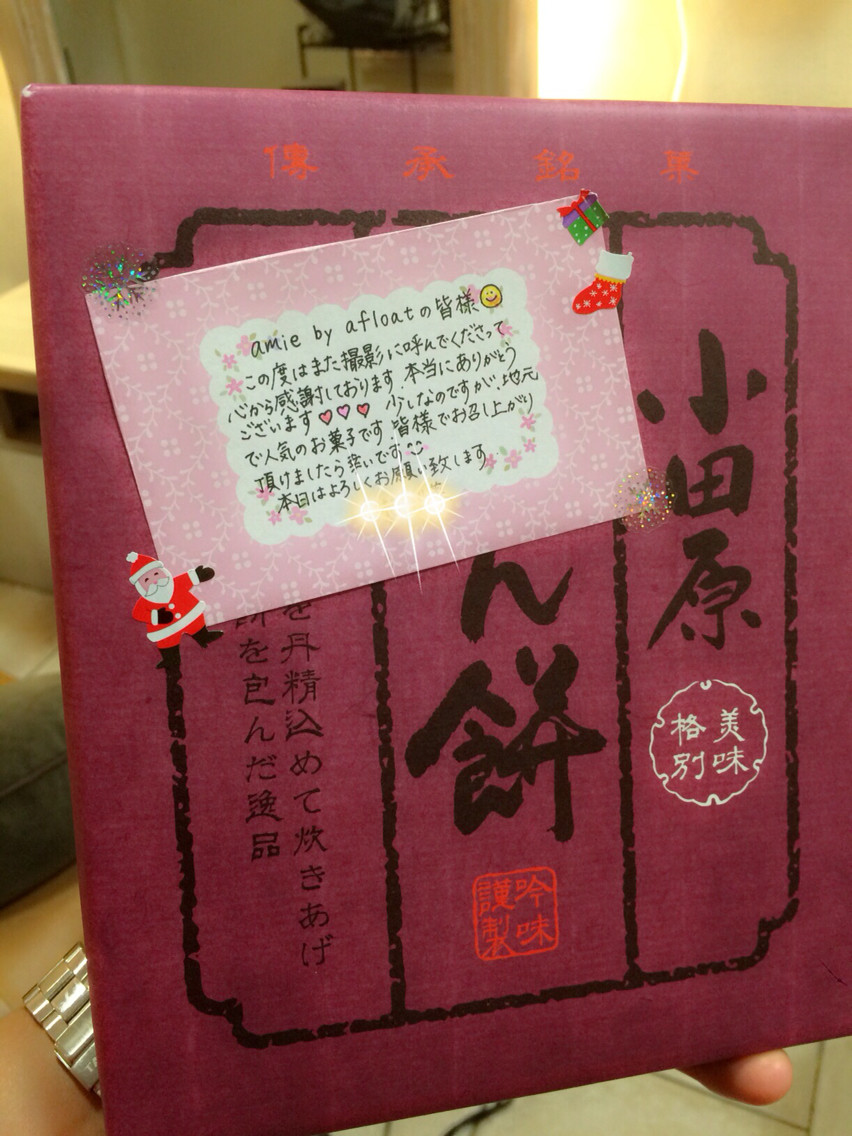 傳承銘菓
amie by afloatの皆様
この度はまた撮影に呼んでくださって
心から感謝しております。本当にありがとう
ございます♡♡♡ 少しなのですが、地元
で人気のお菓子です。皆様でお召し上がり
頂けましたら幸いです
本日はよろしくお願い致します。
小田原
美味
格別
ん餅
吟味
謹製
を丹精込めて炊きあげ
を包んだ逸品